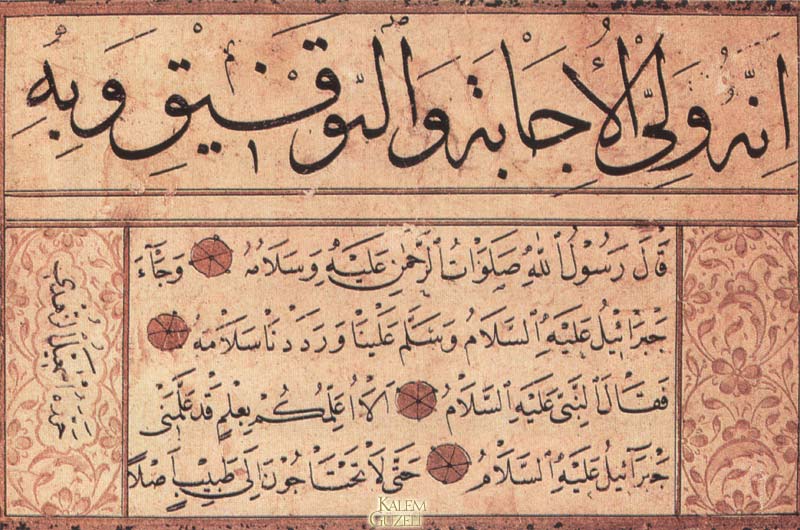 اِنَّهُ وَلِيُّ الْاُجَابَةِ وَالتَّوْفِيْقِ وَبِهِ
قَالَ رَسُولُ اللّٰهِ صَلَوَاتُ الرَّحْمٰنِ عَلَيْهِ وَسَلَامُهُ وَجَآءَ
جَبْرَائِيلُ عَلَيْهِ السَّلَامُ وَسَلَّمَ عَلَيْنَا وَرَدَدْنَا سَلَامَهُ
فَقَالَ النَّبِيُّ عَلَيْهِ السَّلَامُ اَلَا اُعَلِّمُكُمْ بِعِلْمٍ قَدْ عَلَّمَنِى
جَبْرَآئِيلُ عَلَيْهِ السَّلَامُ حَتّٰى لَا تَحْتَاجُونَ اِلٰى طَبِيْبٍ اَصْلًا
KALEM
GÜZELİ